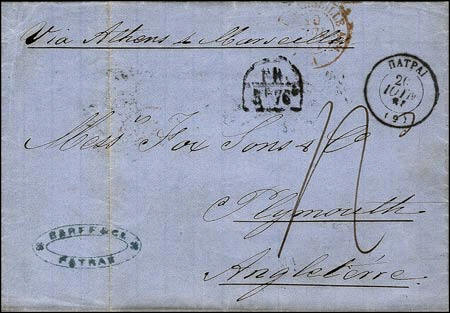 Via Athens & Marseille
ΠΑΤΡΑΙ
20
ΙΟΥΝ
(9)
F.R.
Mess Fox Sons & Co
Plymouth
Angleterre
BARFF & Co.
PATRAS